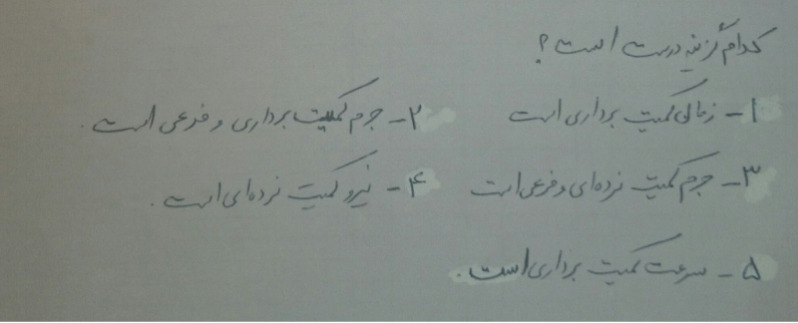 کدام گزینه درست است؟
۱- زمان کمیت برداری است ۲- جرم کمیت برداری و فرعی است.
۳- جرم کمیت نرده‌ای و فرعی است ۴- نیرو کمیت نرده‌ای است.
۵- سرعت کمیت برداری است.